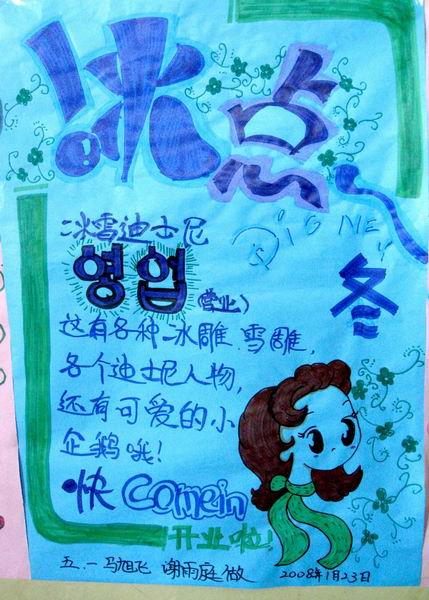 冰点
冰雪迪士尼
DiSNEY
영업(营业)
冬
这有各种冰雕,雪雕,
各个迪士尼人物,
还有可爱的小
企鹅哦!
快 Comein
开业啦!
五.一 马旭飞 谢雨庭 做 2008年1月23日